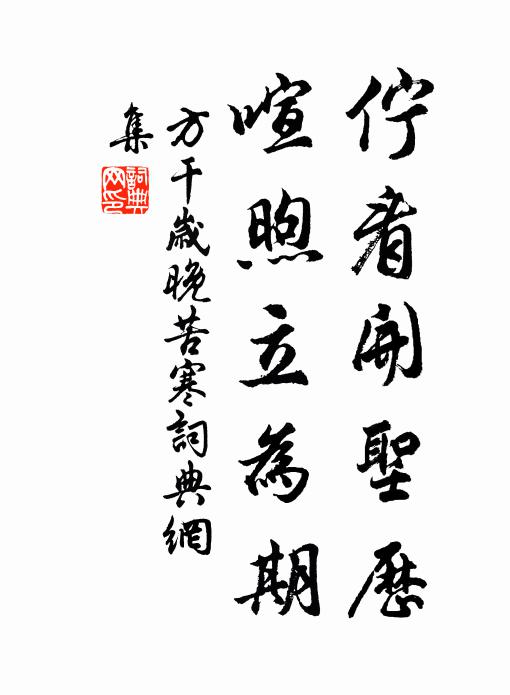 佇看開聖歷
喧煦立為期
方干歲晚苦寒詞典網
集
詞典网印